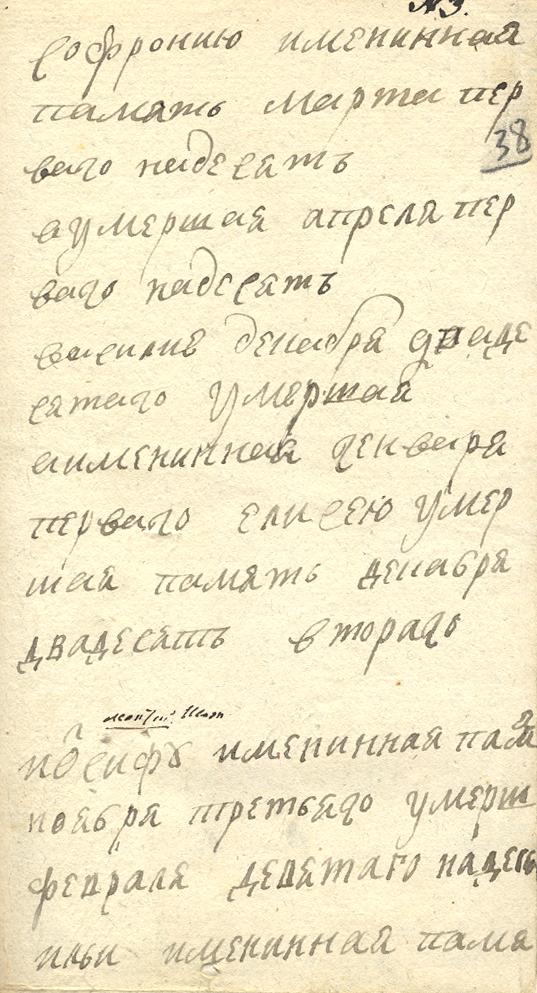 №3.
софронию именинная
память марта пер
38
ваго надесять
аумершая апреля пер
ваго надесять
василие декабря двоаде
сятаго умершая
аименинная генваря
перваго елисею умер
шая память декабря
двадесять втораго
иѡсифу именинная пам
ноября третьяго умерш
февраля девятаго надеся
ильи именинная памя